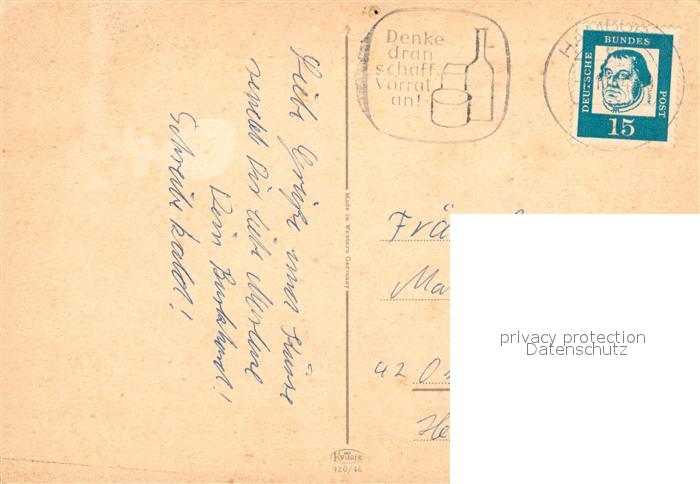 Denke
dran
schaff
Vorrat
an!
DEUTSCHE
BUNDES
POST
15
Liebe Grüße und Küsse
sendet Dir liebe Marlene
Dein Burkhard!
Schreib bald!
Made in Western Germany
Frä
Ma
42 O
He
privacy protection
Datenschutz
Krüger
920/46